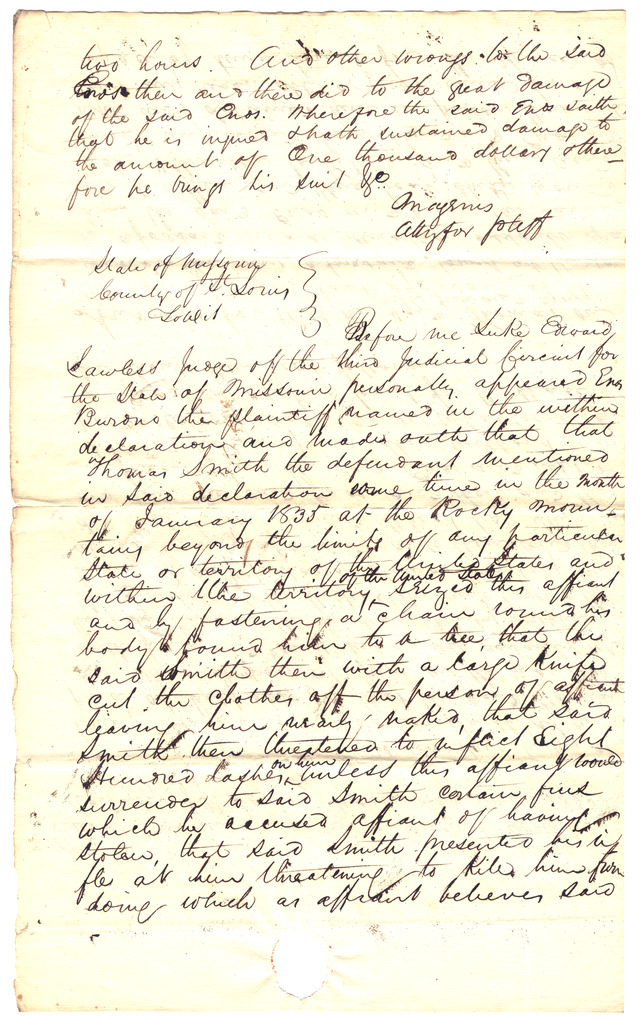 two hours. And other wrongs to the said
Enos then and there did to the great damage
of the said Enos. Wherefore the said Enos saith
that he is injured & hath sustained damage to
the amount of One thousand dollars & there-
fore he brings his suit &c
Magenis
Atty for plff
State of Missouri
County of St. Louis
Before me Luke Edward
Lawless Judge of the third Judicial Circuit for
the State of Missouri personally appeared Enos
the plaintiff named in the within
declaration and made oath that that
Thomas Smith the defendant mentioned
in said declaration some time in the month
of January 1835 at the Rocky Moun-
tains beyond the limits of any particular
State or territory of the United States and
within the territory of the United States seized this affiant
and by fastening a chain round his
body bound him to a tree, that the
said Smith then with a large Knife
cut the clothes off the person of affiant
leaving him nearly naked, that said
Smith then threatened to inflict Eight
Hundred lashes on him unless this affiant would
surrender to said Smith certain furs
which he accused affiant of having
stolen, that said Smith presented his ri
fle at him threatening to kill him from
doing which as affiant believes said